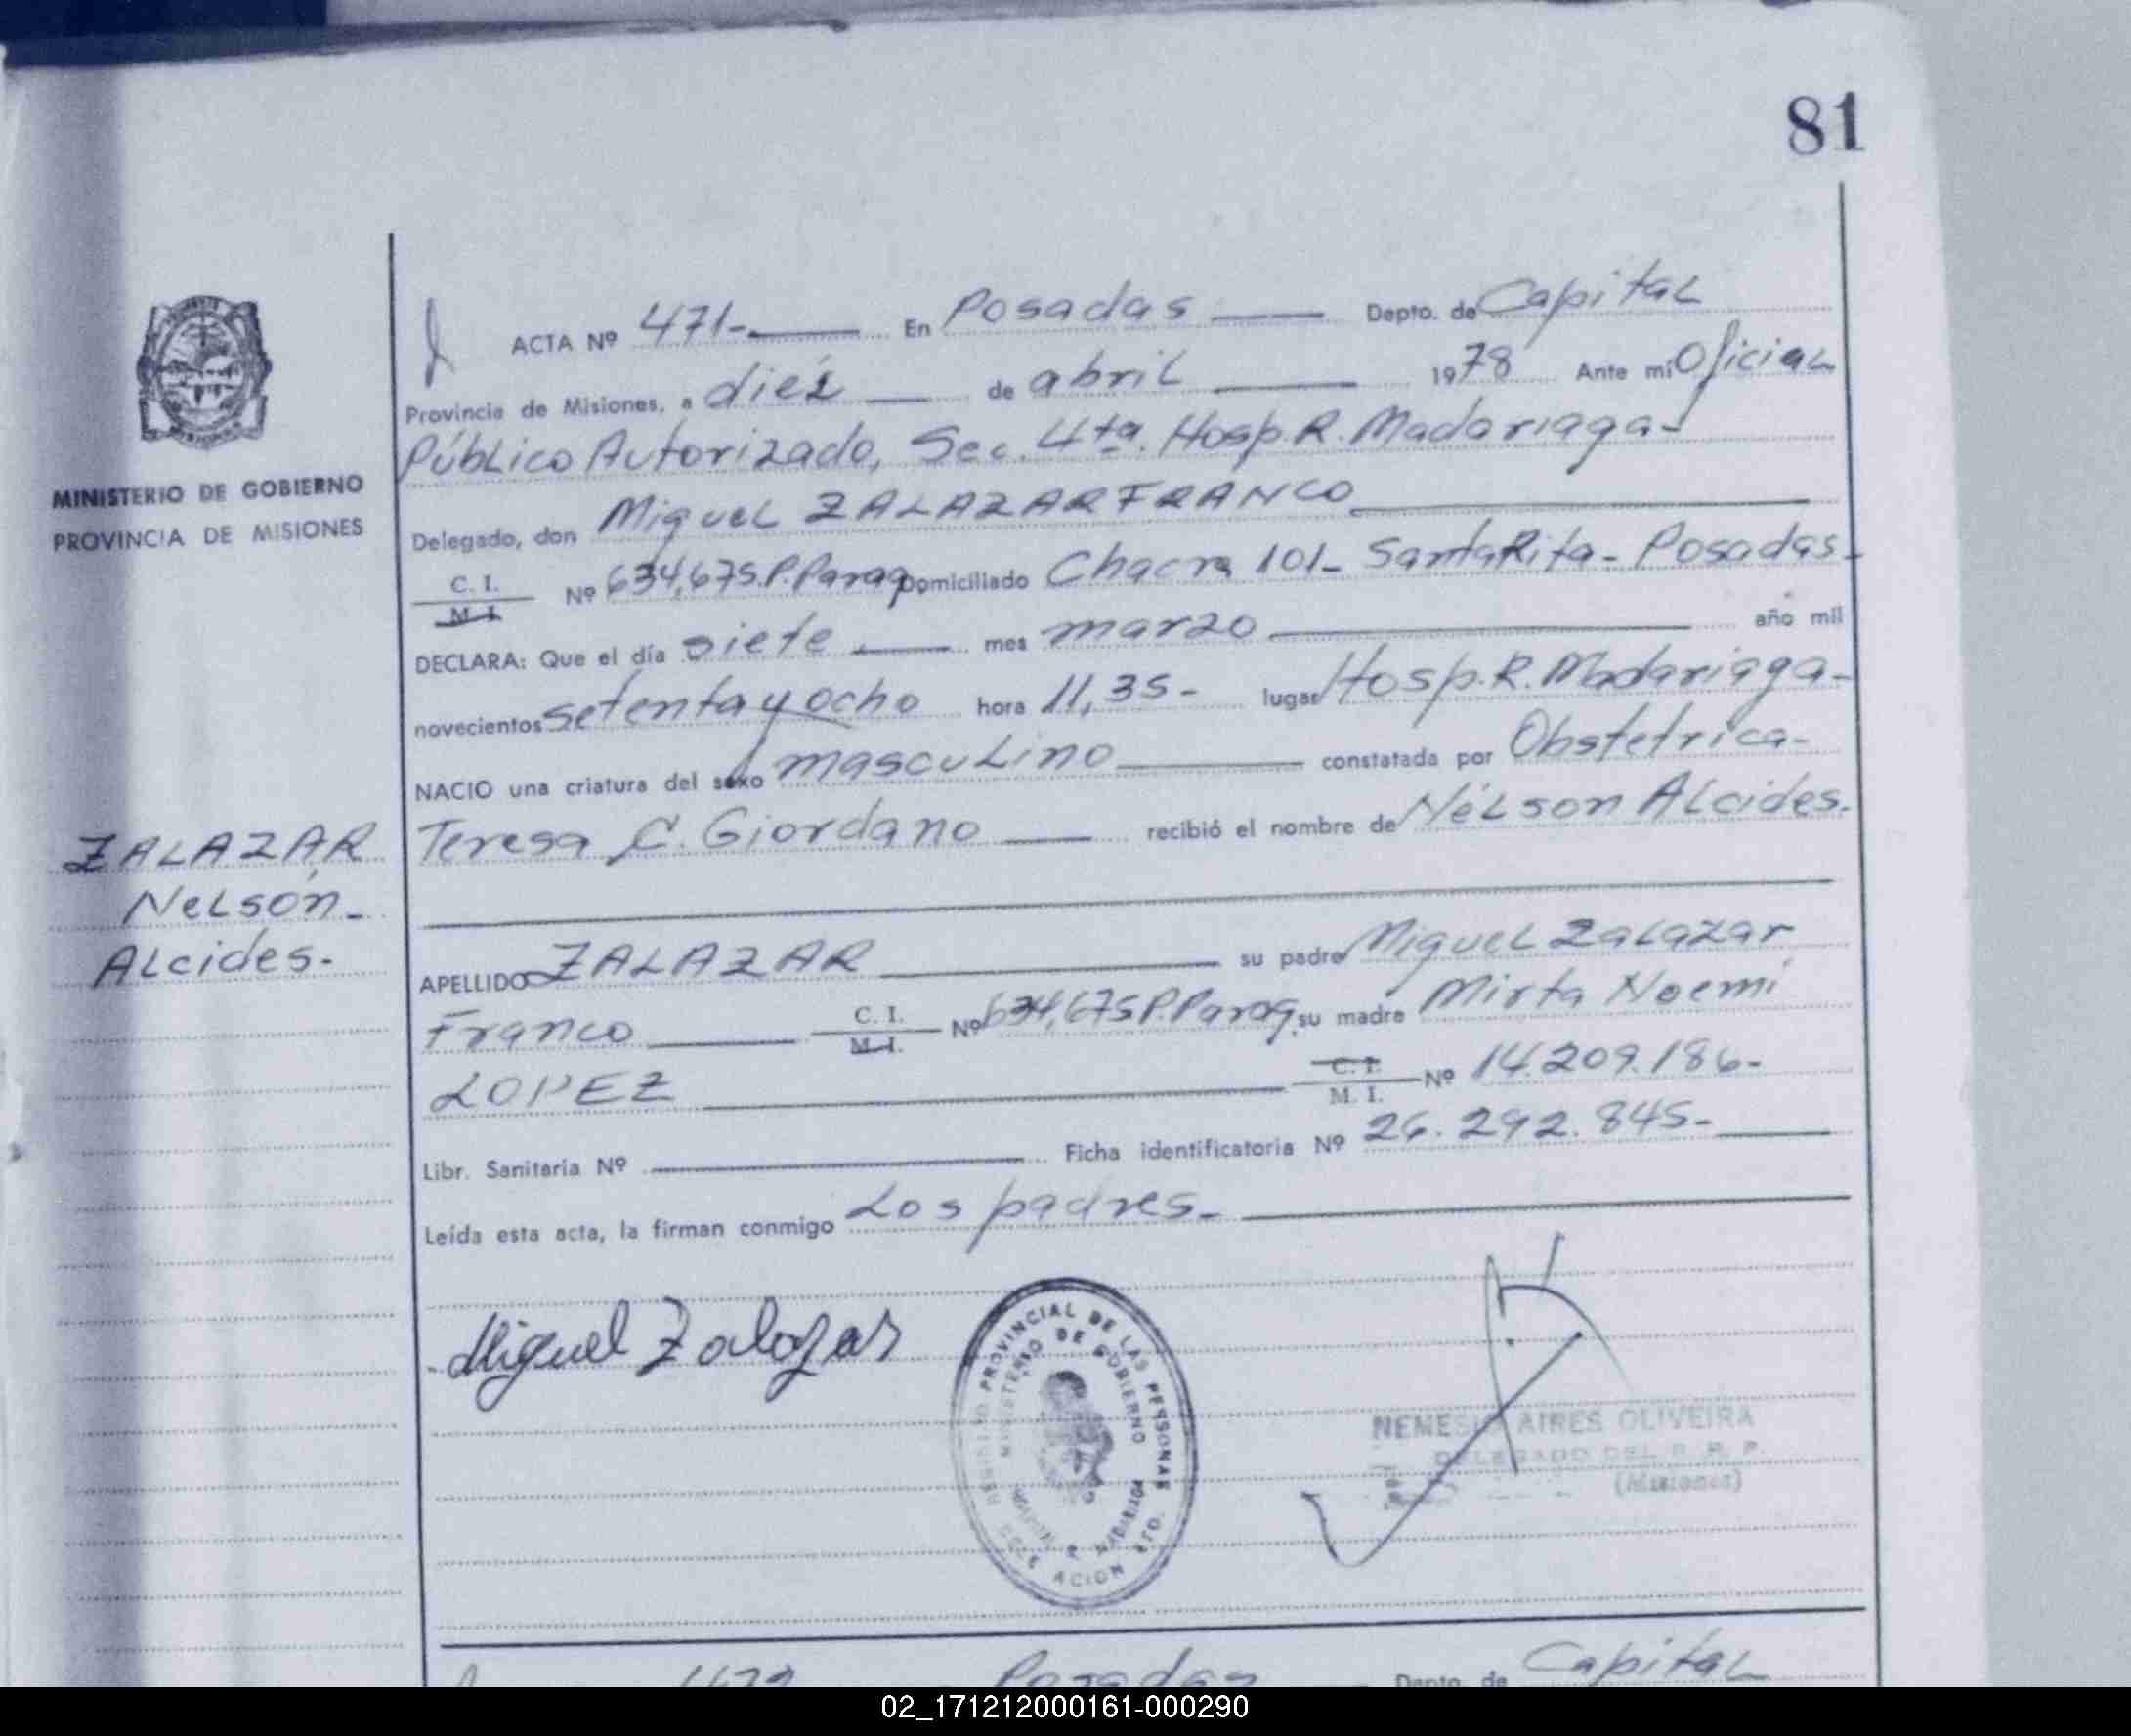 81
ACTA Nº 471- En Posadas Depto. de Capital
Provincia de Misiones, a diéz de abril 1978 Ante mi Oficial
Público Autorizado, Sec. 4ta. Hosp. R. Madariaga-
MINISTERIO DE GOBIERNO
PROVINCIA DE MISIONES
Delegado, don Miguel ZALAZAR FRANCO
C. I.
M. I. Nº 634,675.P.Parag. Domiciliado Chacra 101- Santa Rita- Posadas-
DECLARA: Que el día siete mes marzo año mil
novecientos setenta y ocho hora 11,35- lugar Hosp. R. Madariaga-
NACIO una criatura del sexo masculino constatada por Obstetrica-
Teresa C. Giordano recibió el nombre de Nélson Alcides.
ZALAZAR
Nelsón-
Alcides.
APELLIDO ZALAZAR su padre Miguel Zalazar
Franco C. I.
M. I. Nº 634,675 P.Parag. su madre Mirta Noemí
LOPEZ C. I.
M. I. Nº 14.209.186-
Libr. Sanitaria Nº Ficha identificatoria Nº 26.292.845-
Leída esta acta, la firman conmigo Los padres-
Miguel Zalazar
PROVINCIAL DE LAS PERSONAS
MINISTERIO DE GOBIERNO
NEMESIO AIRES OLIVEIRA
DELEGADO DEL R. P. P.
(Misiones)
472 Posadas Depto. de Capital
02_171212000161-000290